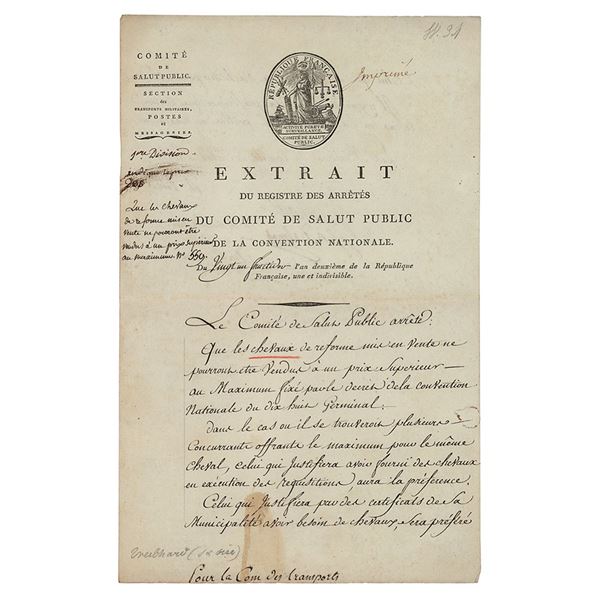 COMITÉ
DE
SALUT PUBLIC.
SECTION
des
TRANSPORTS MILITAIRES,
POSTES
et
MESSAGERIES.
1ere Division
Que les chevaux
de reforme mis en
vente ne pourront être
vendus à un prix supérieur
au maximum. N° 559.
RÉPUBLIQUE FRANÇAISE
ACTIVITÉ PURETÉ
SURVEILLANCE.
COMITÉ DE SALUT
PUBLIC.
Imprimé
EXTRAIT
DU REGISTRE DES ARRÊTÉS
DU COMITÉ DE SALUT PUBLIC
DE LA CONVENTION NATIONALE.
Du Vingt un fructidor l'an deuxième de la République
Française, une et indivisible.
Le Comité de Salut Public arrête:
Que les chevaux de reforme mis en vente ne
pourront être vendus à un prix Superieur
au Maximum fixé par le decret de la convention
Nationale du dix huit Germinal.
dans le cas ou il se trouveroit plusieurs
Concurrants offrants le maximum pour le même
cheval, celui qui Justifiera avoir fourni des chevaux
en exécution des requisitions, aura la préference.
Celui qui Justifiera par des certificats de sa
Municipalité avoir besoin de chevaux, sera préféré
Pour la Com des transports